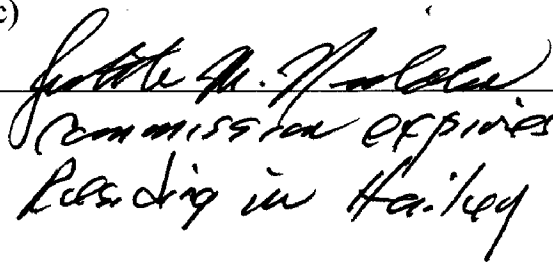 c)
Judith M.
Commission expires
Residing in Hailey